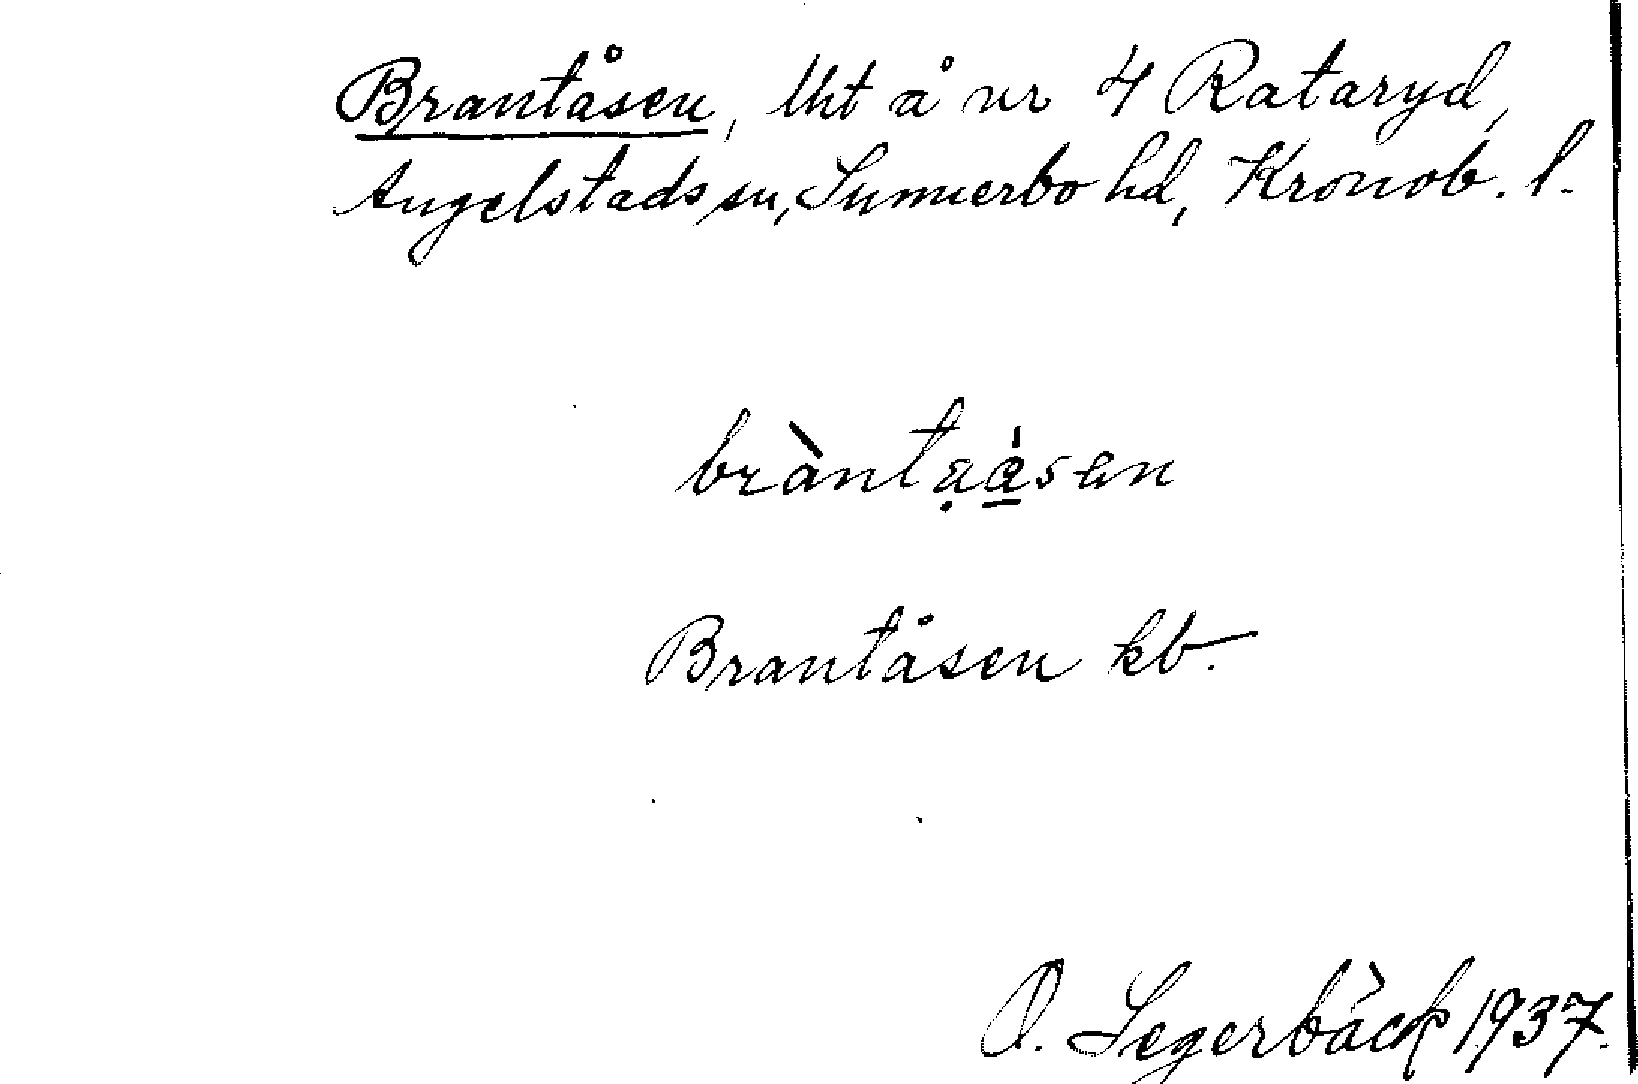 Brantåsen, lht å nr 4 Rataryd,
Angelstads sn, Sunnerbo hd, Kronob. l.
Brantåsen kb.
O. Segerbäck 1937.